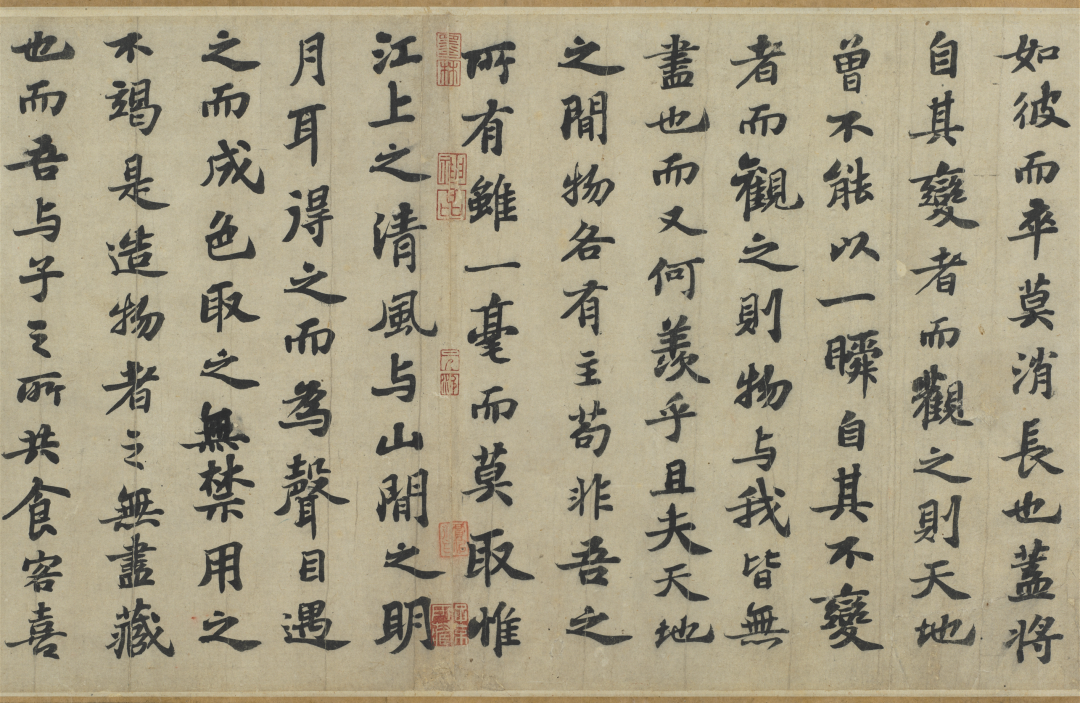 如彼而卒莫消長也蓋將
自其變者而觀之則天地
曾不能以一瞬自其不變
者而觀之則物与我皆無
盡也而又何羨乎且夫天地
之閒物各有主苟非吾之
所有雖一毫而莫取惟
江上之清風与山閒之明
月耳得之而為聲目遇
之而成色取之無禁用之
不竭是造物者之無盡藏
也而吾与子之所共食客喜
墨林